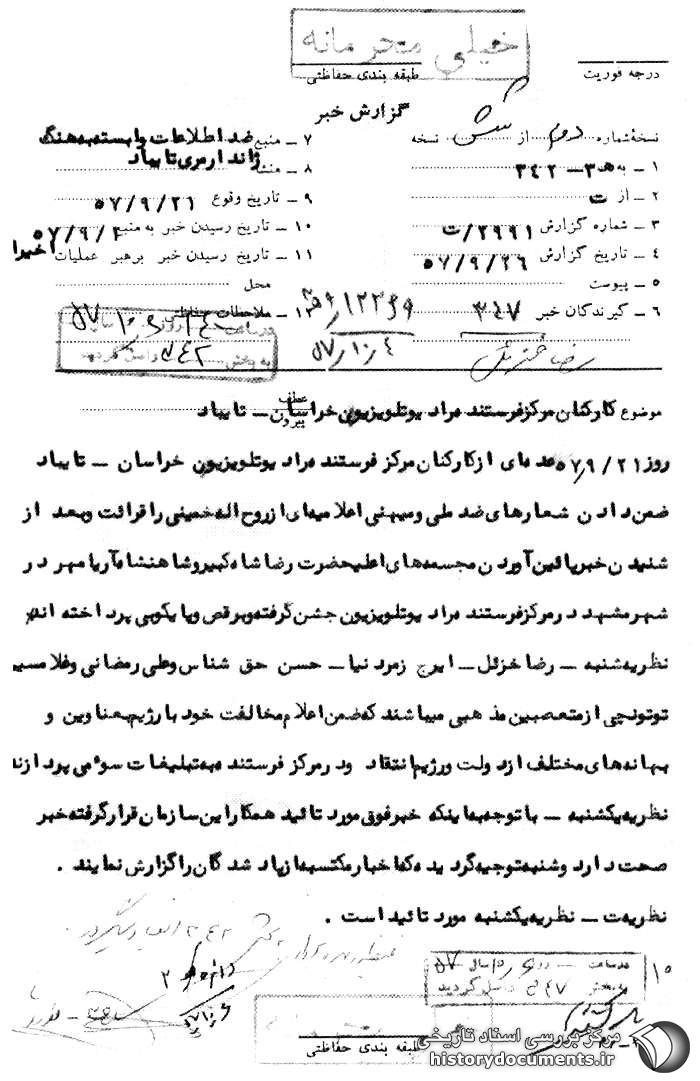 خیلی محرمانه
درجه فوریت
طبقه بندی حفاظتی
گزارش خبر
نسخهٔ شماره دوم از شش نسخه
۱ ــ به ه‍ ۳ــ ۳۴۲
۲ ــ از ت
۳ ــ شماره گزارش ۲۹۹۱/ت
۴ ــ تاریخ گزارش ۵۷/۹/۲۶
۵ ــ پیوست
۶ ــ گیرندگان خبر ۳۴۷
۷ ــ منبع ضد اطلاعات وابسته به هنگ
ژاندارمری تایباد
۸ ــ منشاء
۹ ــ تاریخ وقوع ۵۷/۹/۲۱
۱۰ ــ تاریخ رسیدن خبر به منبع ۵۷/۹/
۱۱ ــ تاریخ رسیدن خبر برهبر عملیات اخیرا
محل
۱۲ ــ ملاحظات حفاظتی
۵۷/۱۰/۴
رضا خزئل
موضوع کارکنان مرکز فرستنده رادیو تلویزیون خراسان ــ تایباد
عطف
پیرون
روز ۵۷/۹/۲۱ عده‌ای از کارکنان مرکز فرستنده رادیو تلویزیون خراسان ــ تایباد
ضمن دادن شعارهای ضد ملی و میهنی اعلامیه‌ای از روح اله خمینی را قرائت و بعد از
شنیدن خبر پائین آوردن مجسمه‌های اعلیحضرت رضا شاه کبیر و شاهنشاه آریامهر در
شهر مشهد در مرکز فرستنده رادیو تلویزیون جشن گرفته و برقص و پایکوبی پرداخته اند
نظریه شنبه ــ رضا خزئل ــ ایرج زمردنیا ــ حسن حق شناس و علی رمضانی و غلامسین
توتونچی از متعصبین مذهبی میباشند که ضمن اعلام مخالفت خود با رژیم بعناوین و
بهانه‌های مختلف از دولت و رژیم انتقاد و در مرکز فرستنده به تبلیغات سوء می پردازند
نظریه یکشنبه ــ با توجه به اینکه خبر فوق مورد تائید همکار این سازمان قرار گرفته خبر
صحت دارد و شنبه توجیه گردیده که اخبار مکتسبه از یاد شدگان را گزارش نمایند .
نظریه ت ــ نظریه یکشنبه مورد تائید است .
طبقه بندی حفاظتی
مرکز بررسی اسناد تاریخی
historydocuments.ir